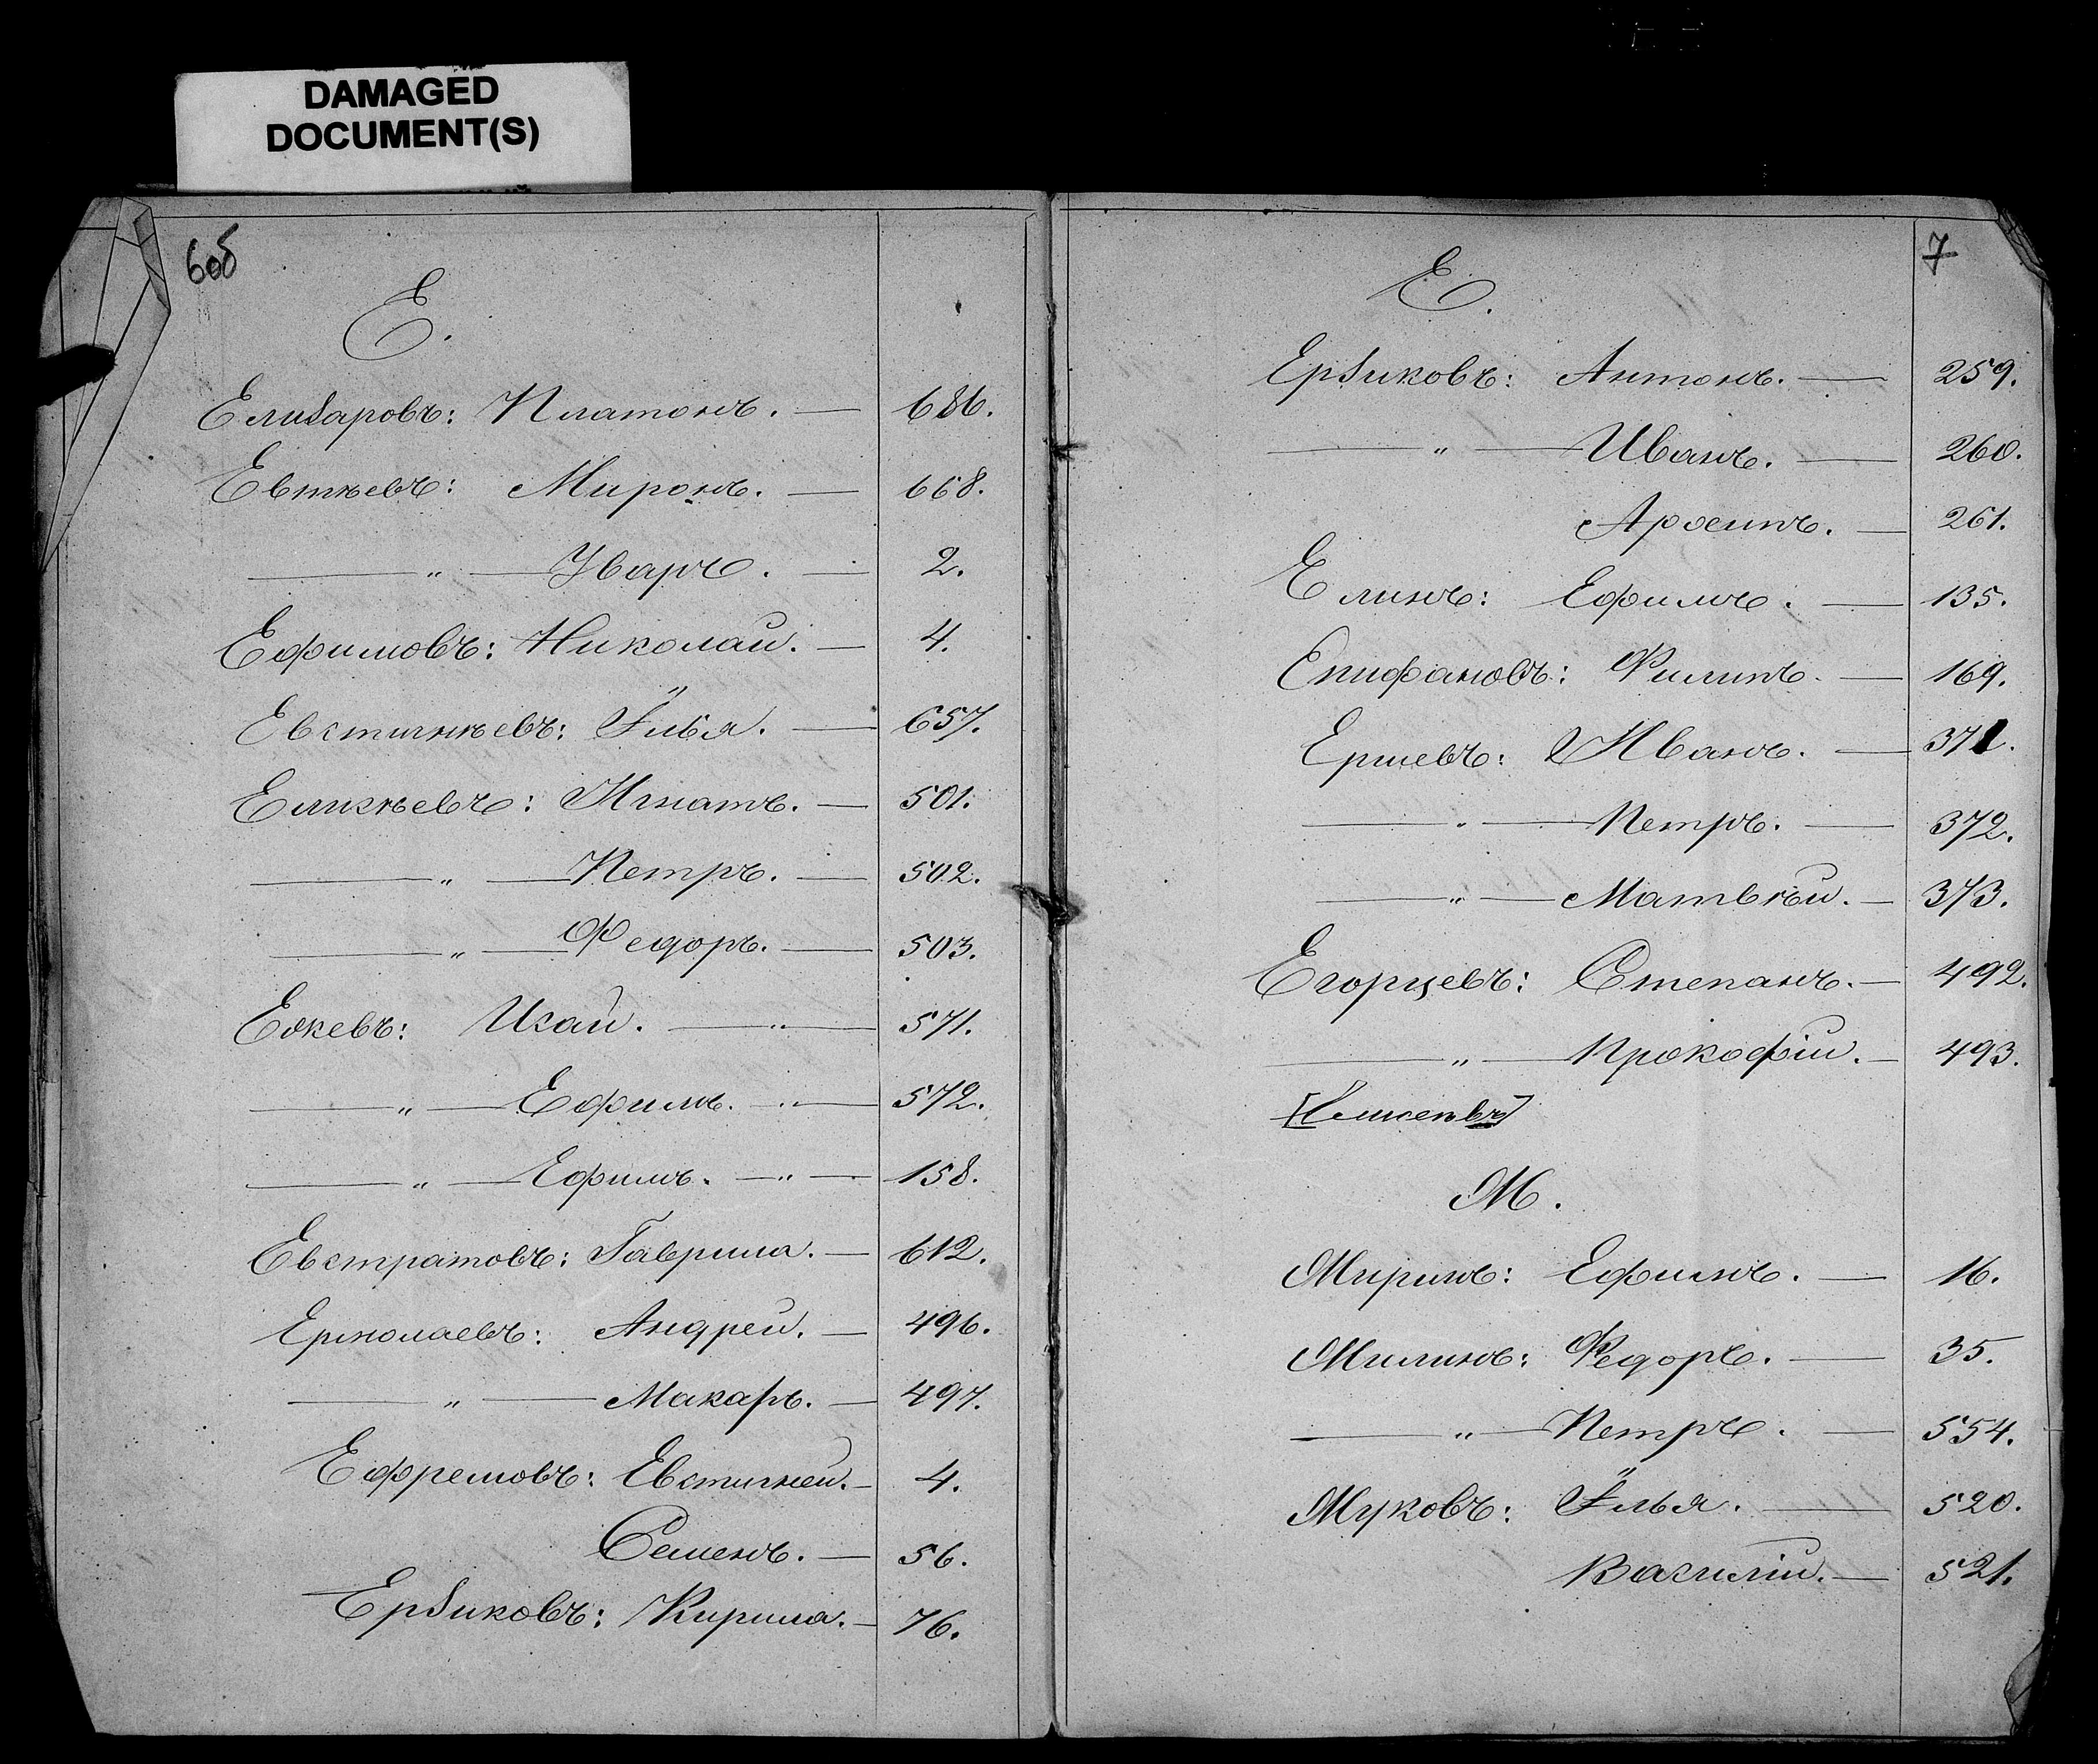 DAMAGED
DOCUMENT(S)
6об
Е.
Елизаровъ: Платонъ. — 686.
Евтѣевъ: Миронъ. — 668.
— " — Уваръ. — 2.
Ефимовъ: Николай. — 4.
Евстигнѣевъ: Илья. — 657.
Елисѣевъ: Игнатъ. — 501.
— " — Петръ. — 502.
— " — Федоръ. — 503.
Еськевъ: Исай. — " — 571.
— " — Ефимъ. — " — 572.
— " — Ефимъ. — " — 158.
Евстратовъ: Гаврила. — 612.
Ермолаевъ: Андрей. — 496.
— " — Макаръ. — 497.
Ефремовъ: Евстигней. — 4.
Семенъ. — 56.
Ерзиковъ: Кирила. — 76.
7
Е.
Ерзиковъ: Антонъ. — 259.
— " — Иванъ. — 260.
Архипъ. — 261.
Елинъ: Ефимъ. — 135.
Епифановъ: Филипъ. — 169.
Ершевъ: Иванъ. — 371.
— " — Петръ. — 372.
— " — Матвѣй. — 373.
Егорцевъ: Степанъ. — 492.
— " — Прокофій. — 493.
М.
Миринъ: Ефимъ. — 16.
Милинъ: Федоръ. — 35.
— " — Петръ. — 554.
Муковъ: Илья. — 520.
Василій. — 521.